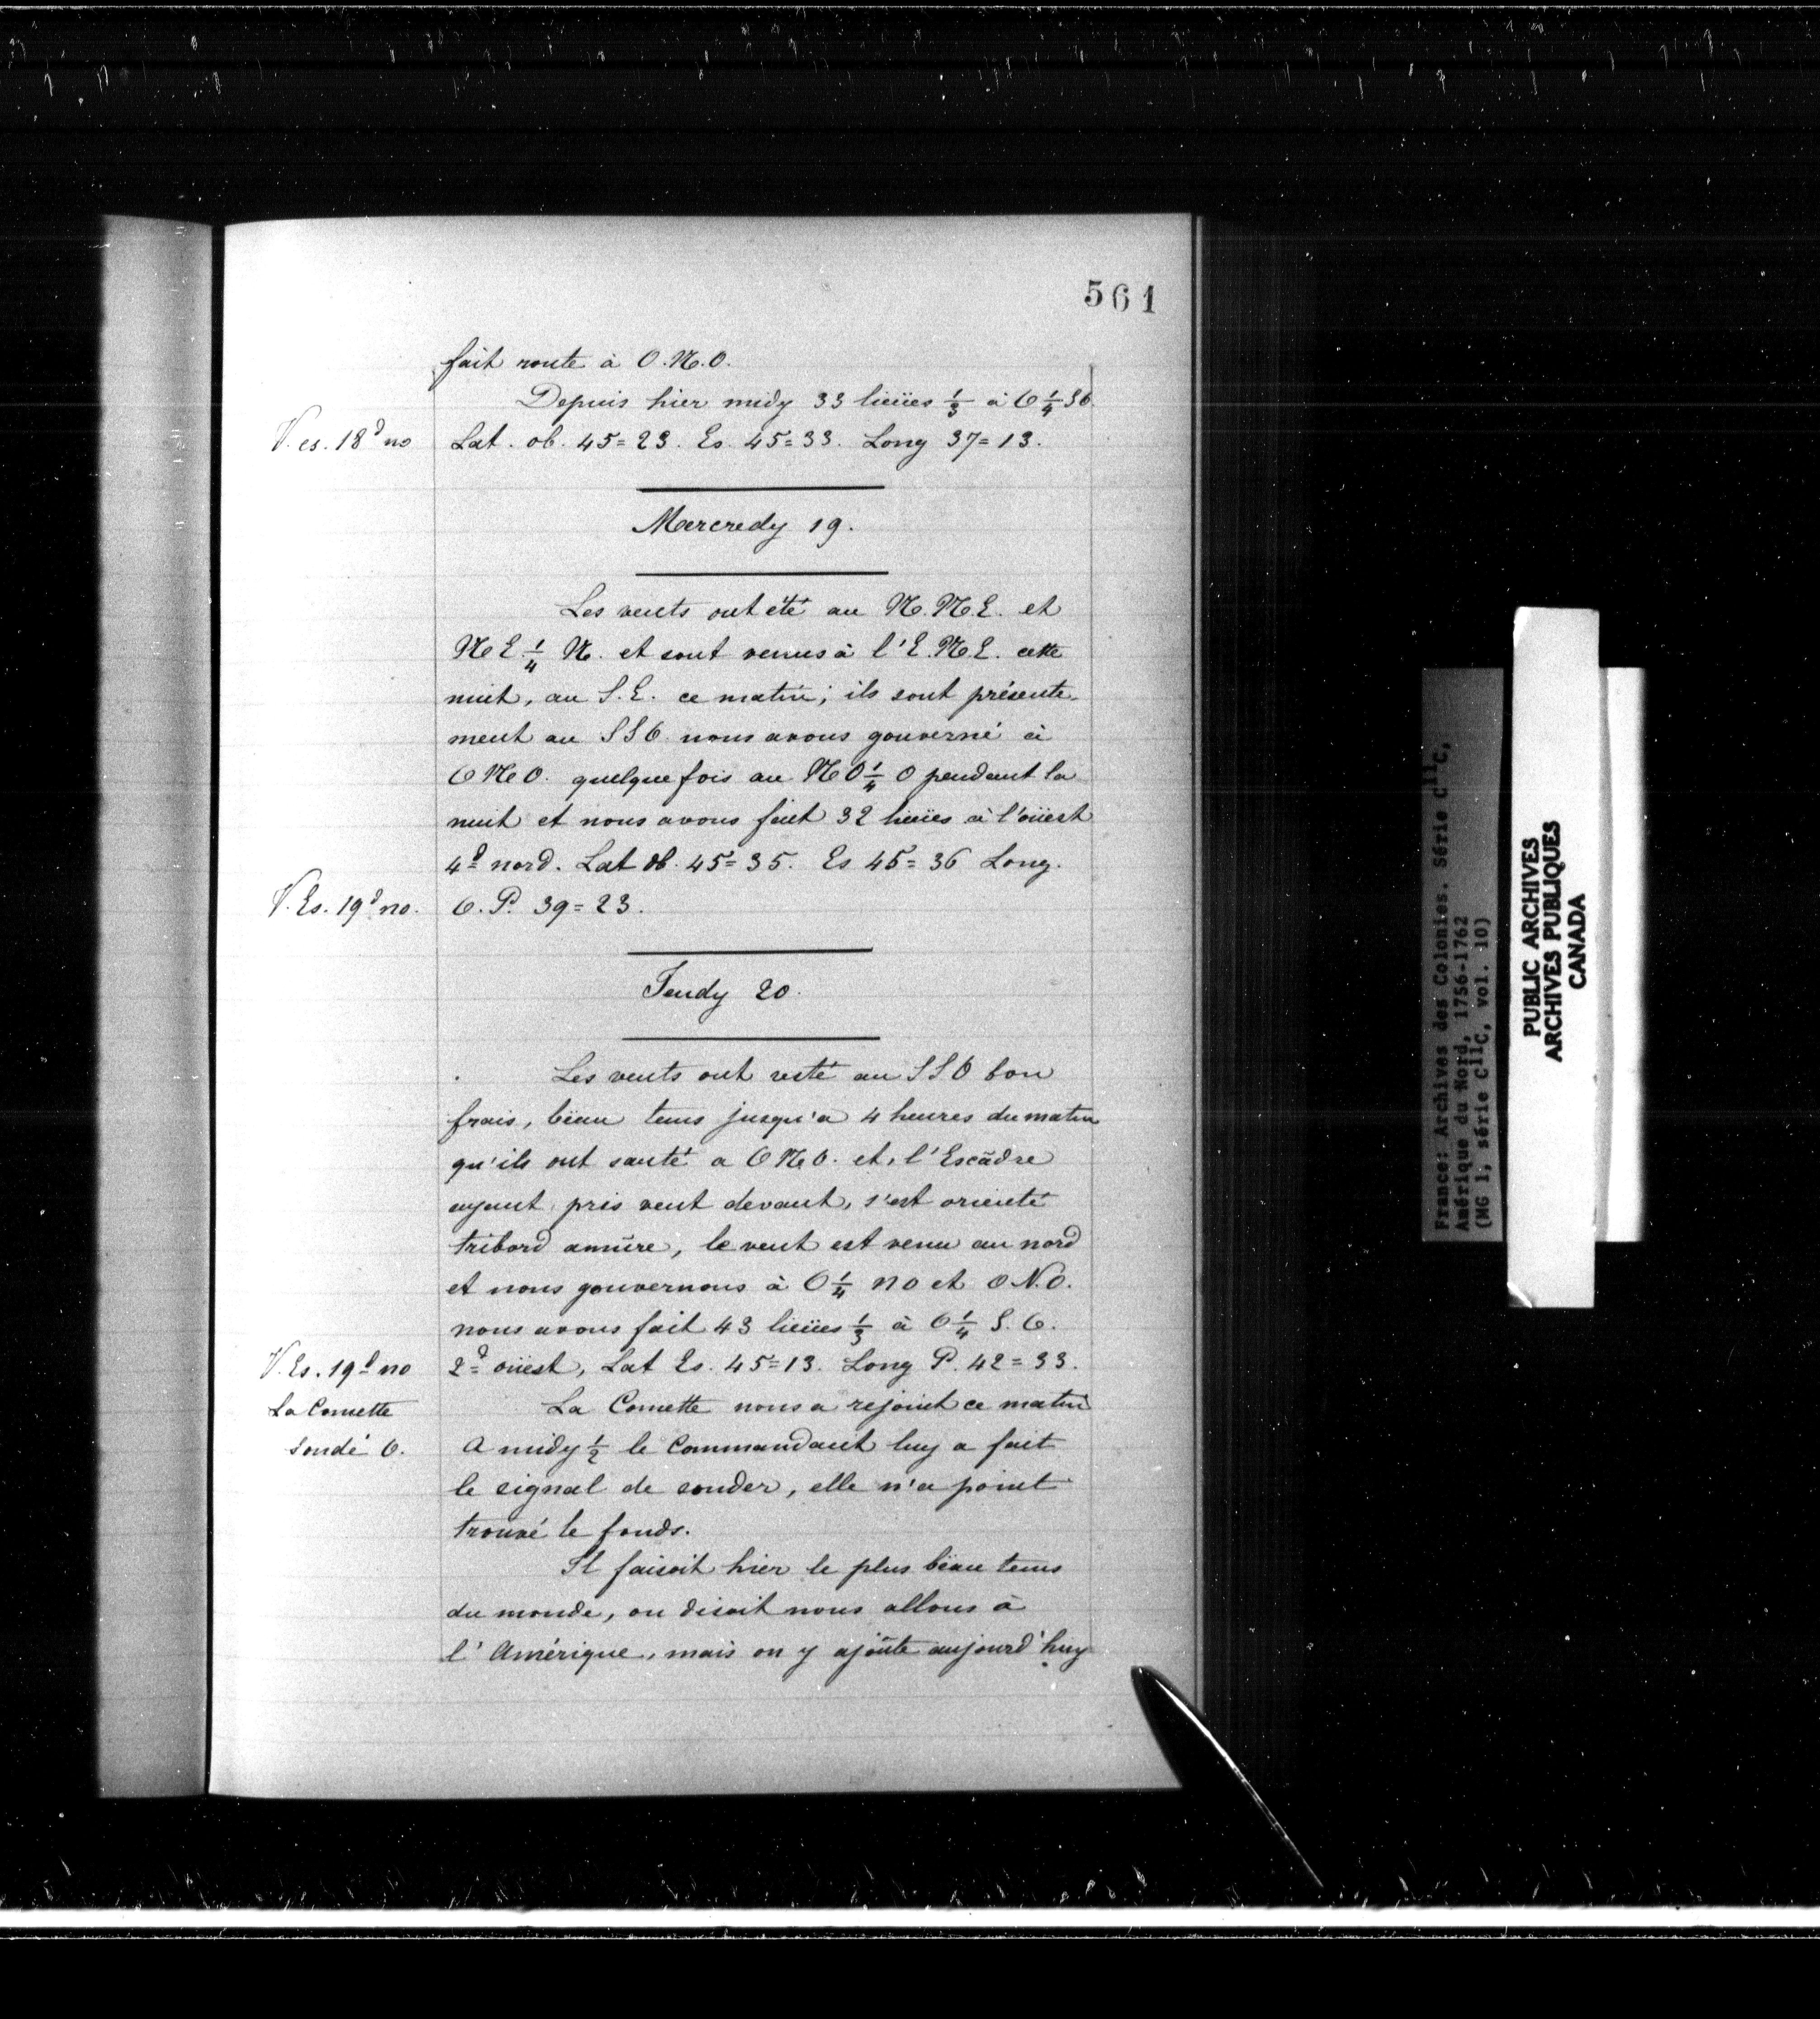 561
fait route à O.N.O.
Depuis hier midy 33 lieües 1/3 à O 1/4 SO.
V. es. 18 d no
Lat. ob. 45=23. Es. 45=33. Long 37=13.
Mercredy 19.
Les vents ont été au N.N.E. et
NE 1/4 N. et sont venus à l'E.N.E. cette
nuit, au S.E. ce matin; ils sont présente-
ment au SSO nous avons gouverné à
ONO. quelque fois au NO 1/4 O pendant la
nuit et nous avons fait 32 lieües à l'oüest
4 d nord. Lat ob. 45=35. Es 45=36 Long.
V. Es. 19 d no.
O. P. 39=23.
Jeudy 20.
Les vents ont resté au SSO bon
frais, bëau tems jusqu'a 4 heures du matin
qu'ils ont sauté a ONO. et, l'Escâdre
ayant pris vent devant, s'est orienté
tribord amûre, le vent est venu au nord
et nous gouvernons à O 1/4 no et O N.O.
nous avons fait 43 lieües 1/3 à O 1/4 S.O.
V. Es. 19 d no
2 d oüest, Lat Es. 45=13. Long P. 42=33.
La Comette
La Comette nous a rejoint ce matin
Sondé O.
A midy 1/2 le Commandant luy a fait
le signal de sonder, elle n'a point
trouvé le fonds.
Il faisoit hier le plus bëau tems
du monde, on disoit nous allons à
l'Amérique, mais on y ajôute aujourd'huy
France: Archives des Colonies. Série C11C,
Amérique du Nord, 1756-1762
(MG 1, série C11C, vol. 10)
PUBLIC ARCHIVES
ARCHIVES PUBLIQUES
CANADA